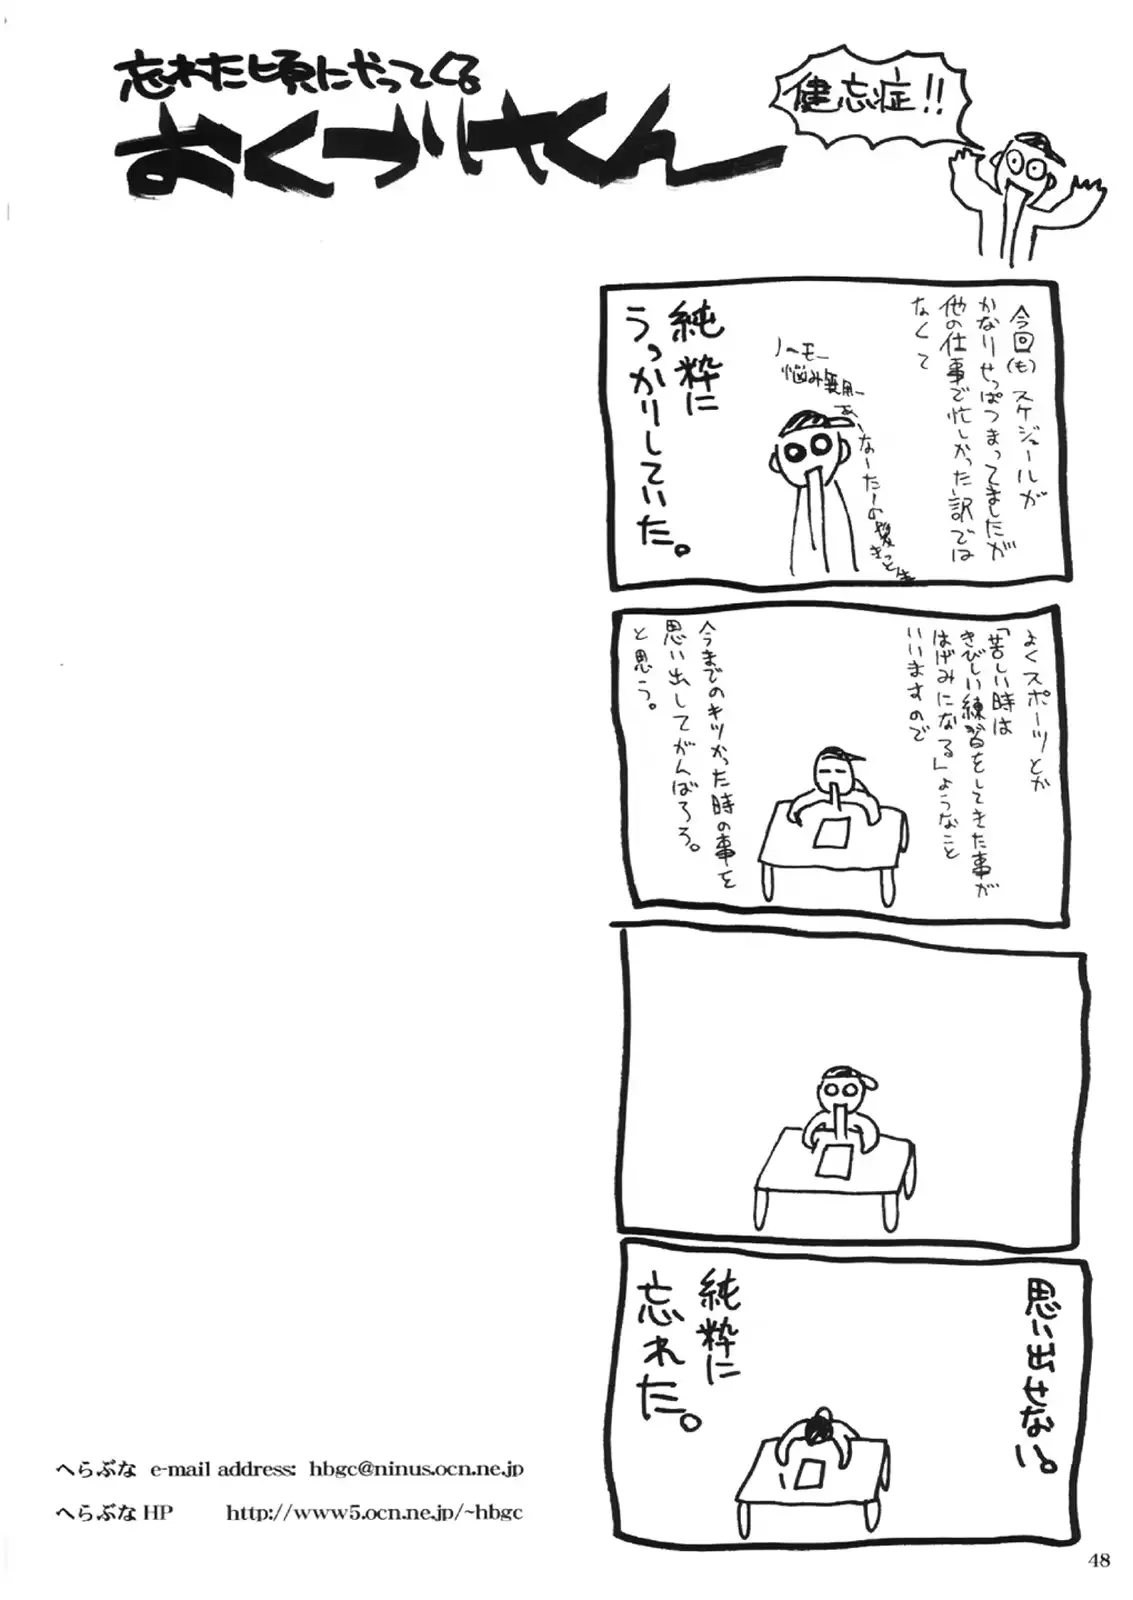 忘れた頃にやってくる
おくづけさくん
健忘症!!
今回(も)スケジュールが
かなりせっぱつまってましたが
他の仕事で忙しかった訳では
なくて
ノーモー
悩み無用ー
あーなーたーの髪
きっと生
純粋に
うっかりしていた。
よくスポーツとか
「苦しい時は
きびしい練習をしてきた事が
はげみになる」ようなこと
いいますので
今までのキツかった時の事を
思い出してがんばろう。
と思う。
思い出せない。
純粋に
忘れた。
へらぶな e-mail address: hbgc@ninus.ocn.ne.jp
へらぶな HP http://www5.ocn.ne.jp/~hbgc
48